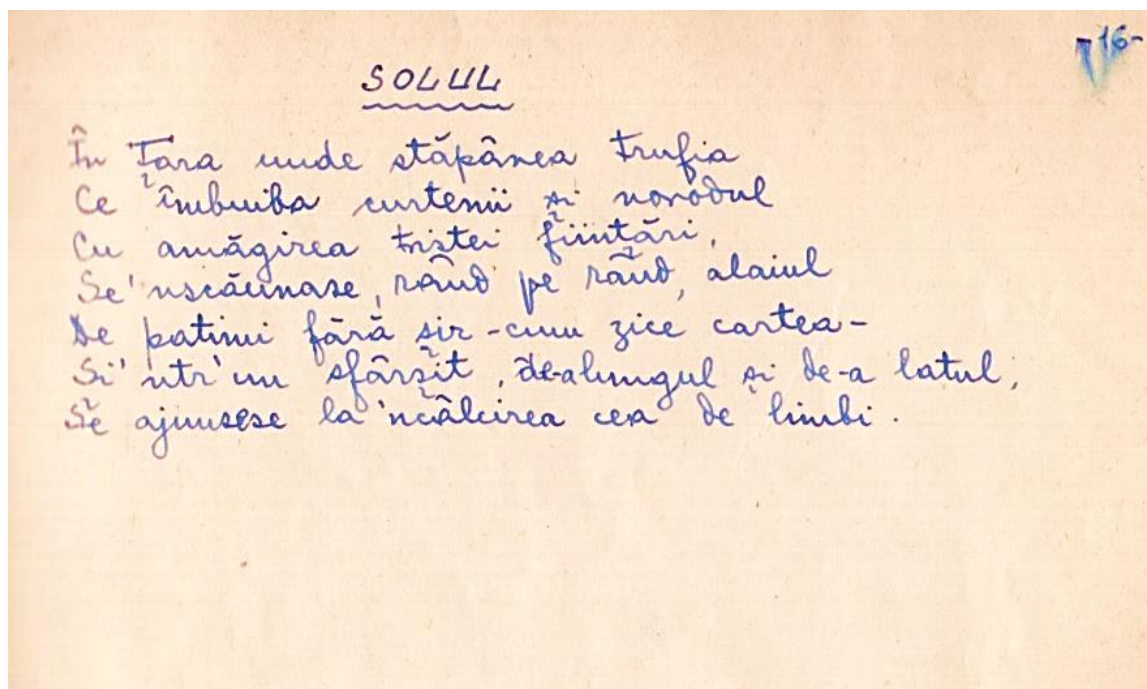 16-
SOLUL
În Țara unde stăpânea trufia
Ce îmbuiba curtenii și norodul
Cu amăgirea tristei ființări,
Se'nscăunase, rând pe rând, alaiul
De patimi fără șir - cum zice cartea -
Și'ntr'un sfârșit, de-alungul și de-a latul,
Se ajunsese la 'ncâlcirea cea de limbi.